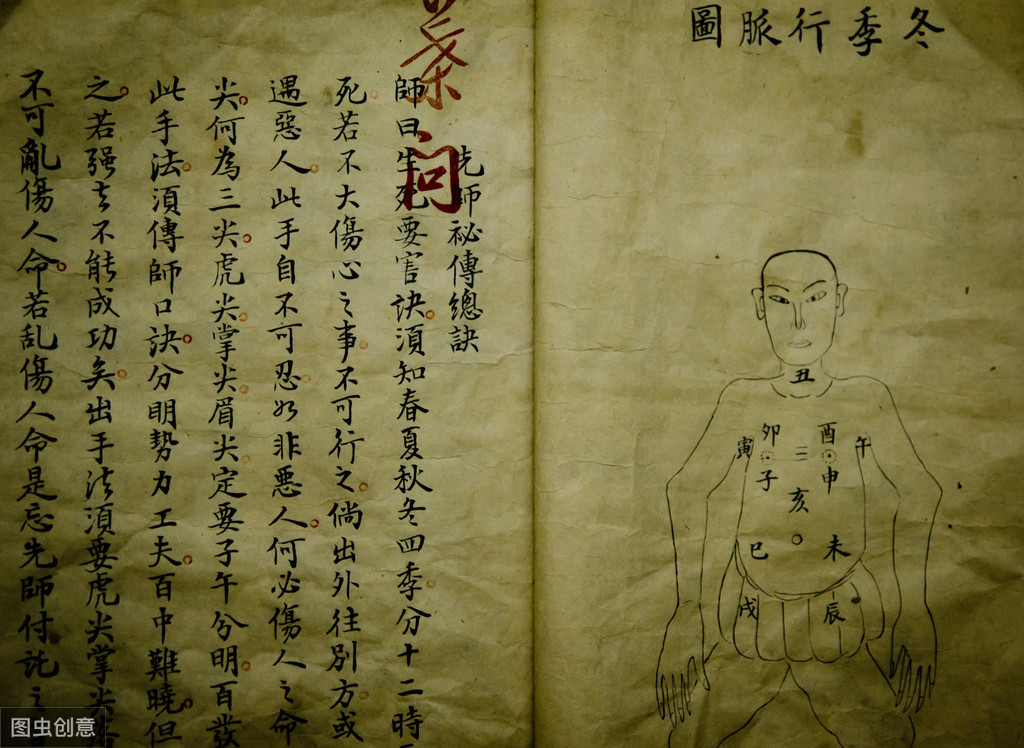 冬季行脈圖
丑
卯
酉
寅
三
午
子
申
亥
巳
未
戌
辰
先師祕傳總訣
師曰生死要害訣須知春夏秋冬四季分十二時
死若不大傷心之事不可行之倘出外往別方或
遇惡人此手自不可忍如非惡人何必傷人之命
尖何為三尖虎尖掌尖眉尖定要子午分明百發
此手法須傳師口訣分明勢力工夫百中難曉但
之若强去不能成功矣出手法須要虎尖掌尖眉
不可亂傷人命若乱傷人命是忘先師付託之
葉問
图虫创意